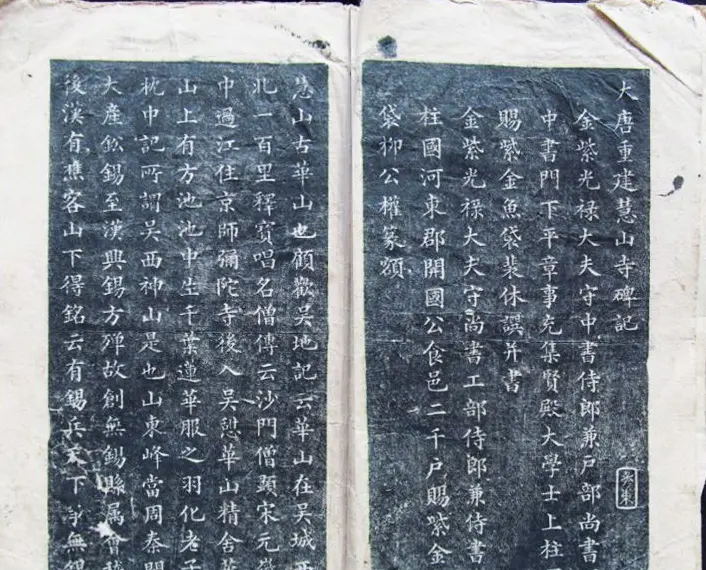 大唐重建慧山寺碑記
金紫光禄大夫守中書侍郎兼戶部尚書
中書門下平章事充集賢殿大學士上柱
賜紫金魚袋裴休譔并書
金紫光禄大夫守尚書工部侍郎兼侍書
柱國河東郡開國公食邑二千戶賜紫金
袋柳公權篆額
慧山古華山也顧歡吳地記云華山在吳城西
北一百里釋寶唱名僧傳云沙門僧顯宋元徽
中過江住京師彌陀寺後入吳憩華山精舍華
山上有方池池中生千葉蓮華服之羽化老子
枕中記所謂吳西神山是也山東峰當周秦間
大産鈆錫至漢興錫方殫故創無錫縣属會稽
後漢有樵客山下得銘云有錫兵天下爭無錫